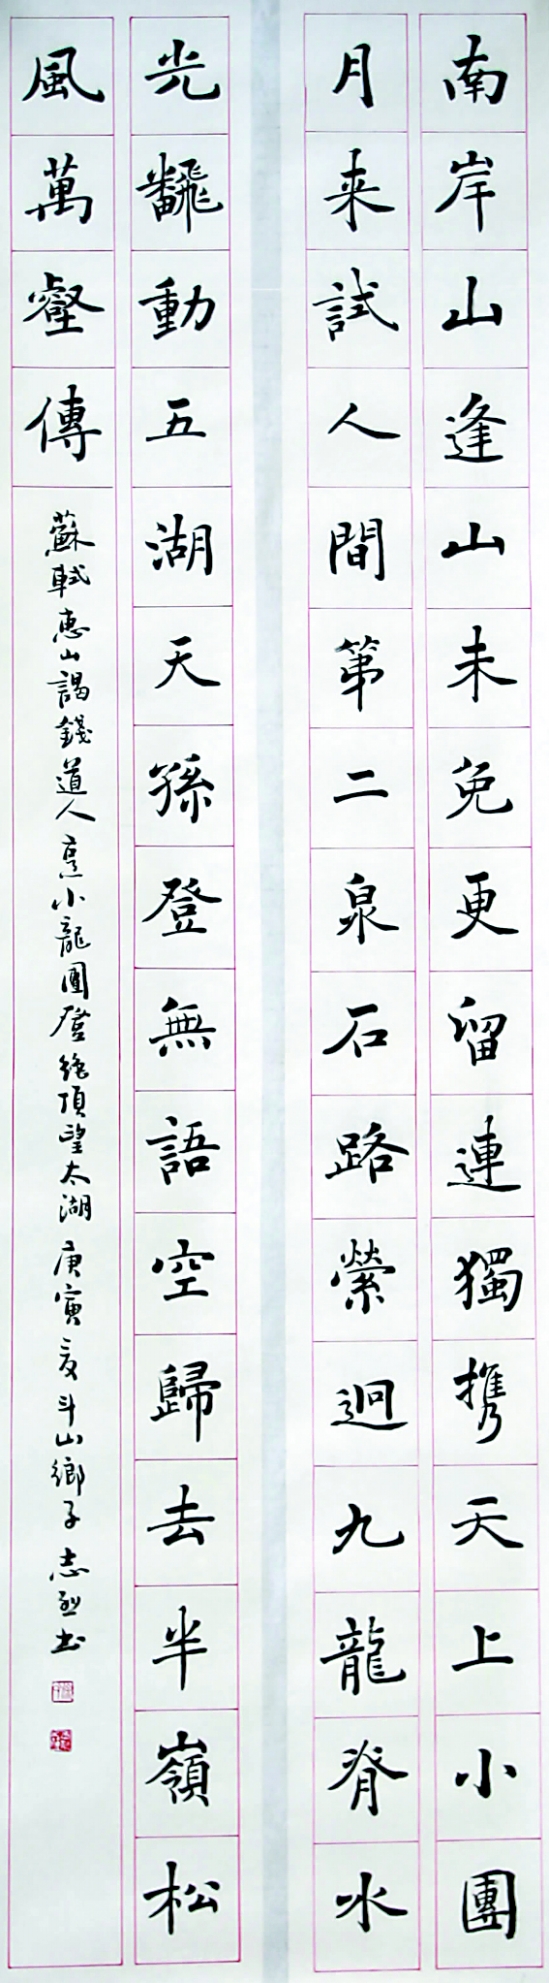 南岸山逢山未免更留連獨携天上小團
月来試人間第二泉石路縈迴九龍脊水
光飜動五湖天孫登無語空歸去半嶺松
風萬壑傳
蘇軾惠山謁錢道人烹小龍團登絶頂望太湖 庚寅夏斗山鄉子志烈书